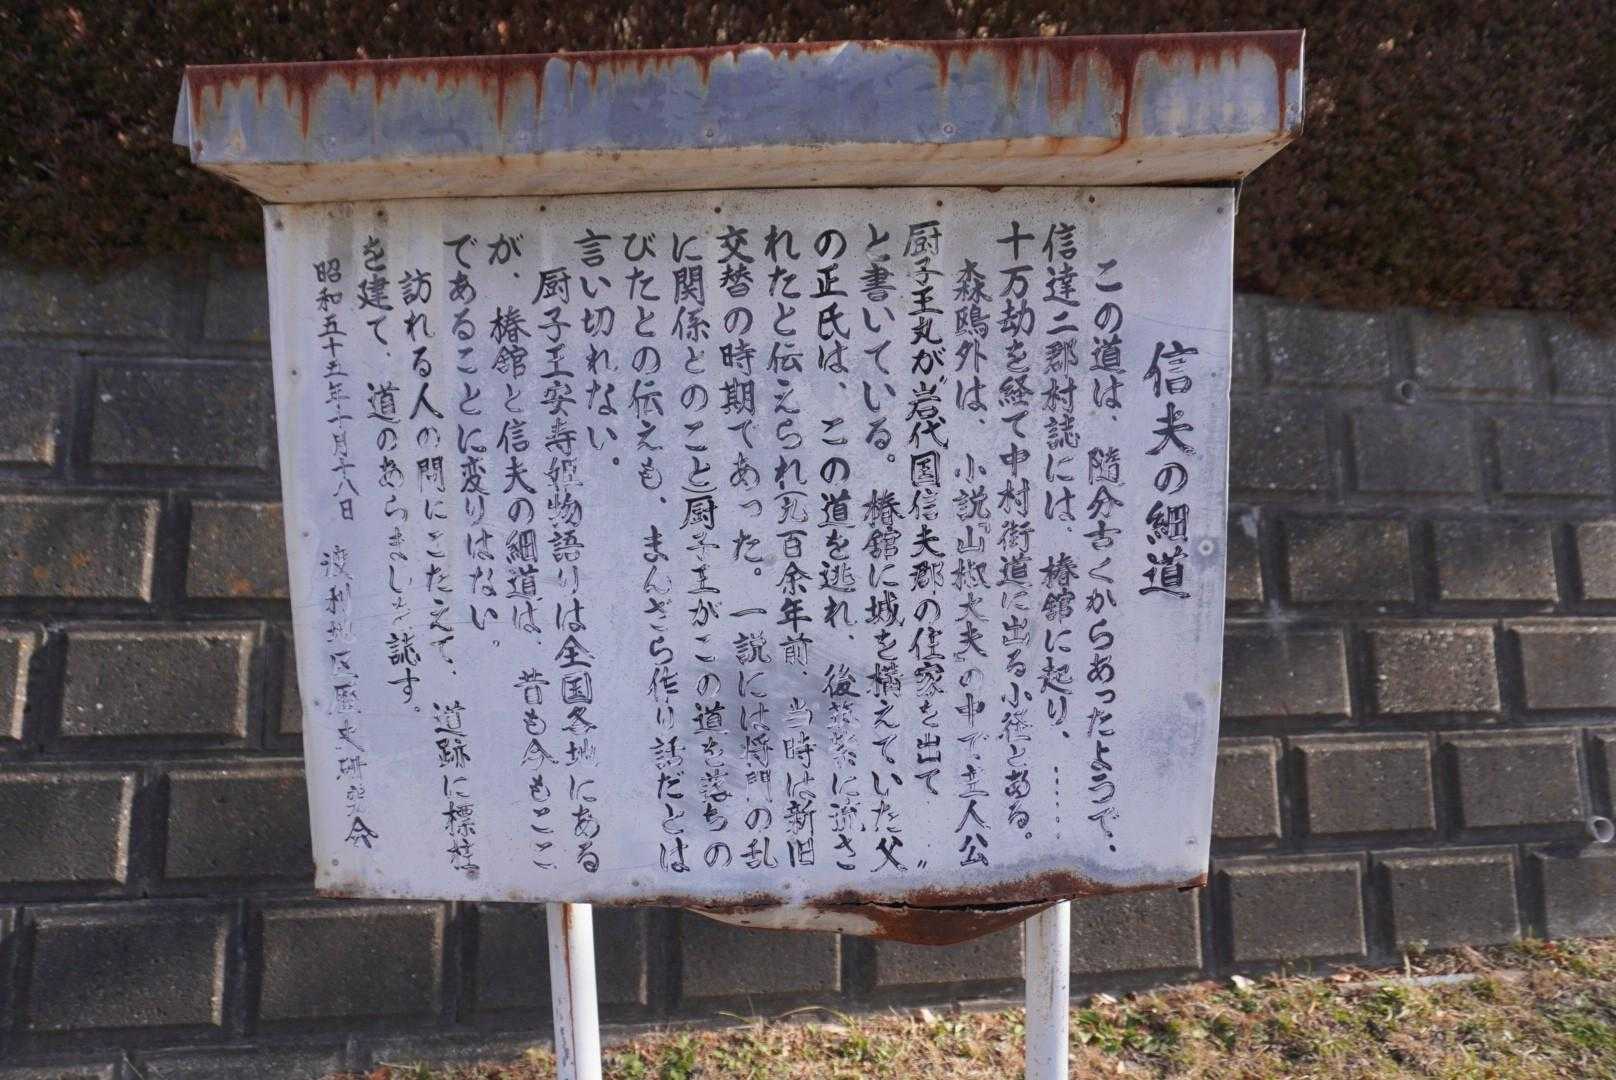 信夫の細道
この道は、随分古くからあったようで、
信達二郡村誌には、椿舘に起り、……
十万劫を経て中村街道に出る小径とある。
森鴎外は、小説『山椒大夫』の中で主人公
厨子王丸が"岩代国信夫郡の住家を出て〃
と書いている。椿舘に城を構えていた父
の正氏は、この道を逃れ、後筑紫に流さ
れたと伝えられ(九百余年前、当時は新旧
交替の時期であった。一説には将門の乱
に関係とのこと)厨子王がこの道を落ちの
びたとの伝えも、まんざら作り話だとは
言い切れない。
厨子王安寿姫物語りは全国各地にある
が、椿舘と信夫の細道は、昔も今もここ
であることに変りはない。
訪れる人の問にこたえて、道跡に標柱
を建て、道のあらましを誌す。
昭和五十五年十月十八日 渡利地区歴史研究会